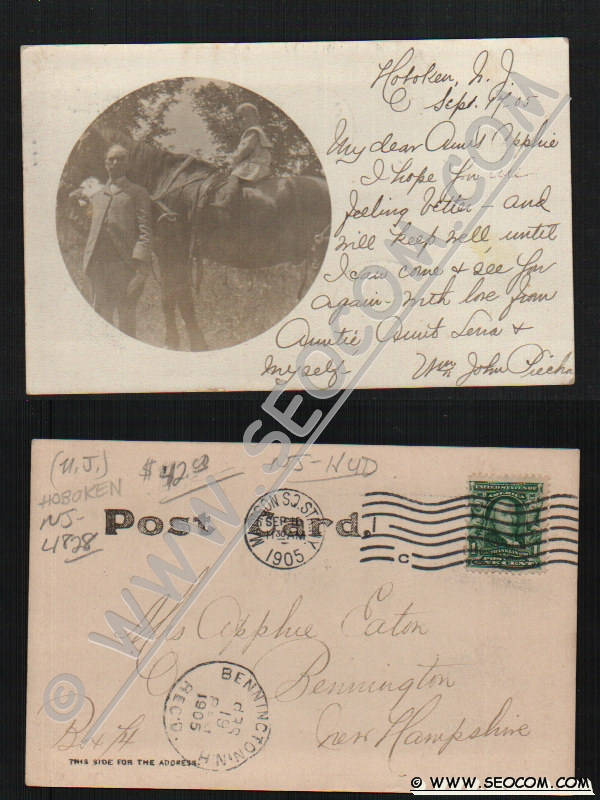 Hoboken, N. J.
Sept. 1905
My dear Aunt Apphie
I hope you are
feeling better - and
will keep well until
I can come & see you
again - with love from
Auntie Aunt Lena &
myself.
Wm John
(N.J.)
$42.00
NJ-HUD
HOBOKEN
NJ-
4828
Post Card.
MADISON SQ. STA. N.Y.
SEP
AM
1905
C
UNITED STATES OF
AMERICA
FRANKLIN
ONE CENT
Apphie Eaton
Bennington
New Hampshire
Box
BENNINGTON, N.H.
SEP
19
1905
REC'D.
THIS SIDE FOR THE ADDRESS.
© WWW.SEOCOM.COM
© WWW.SEOCOM.COM